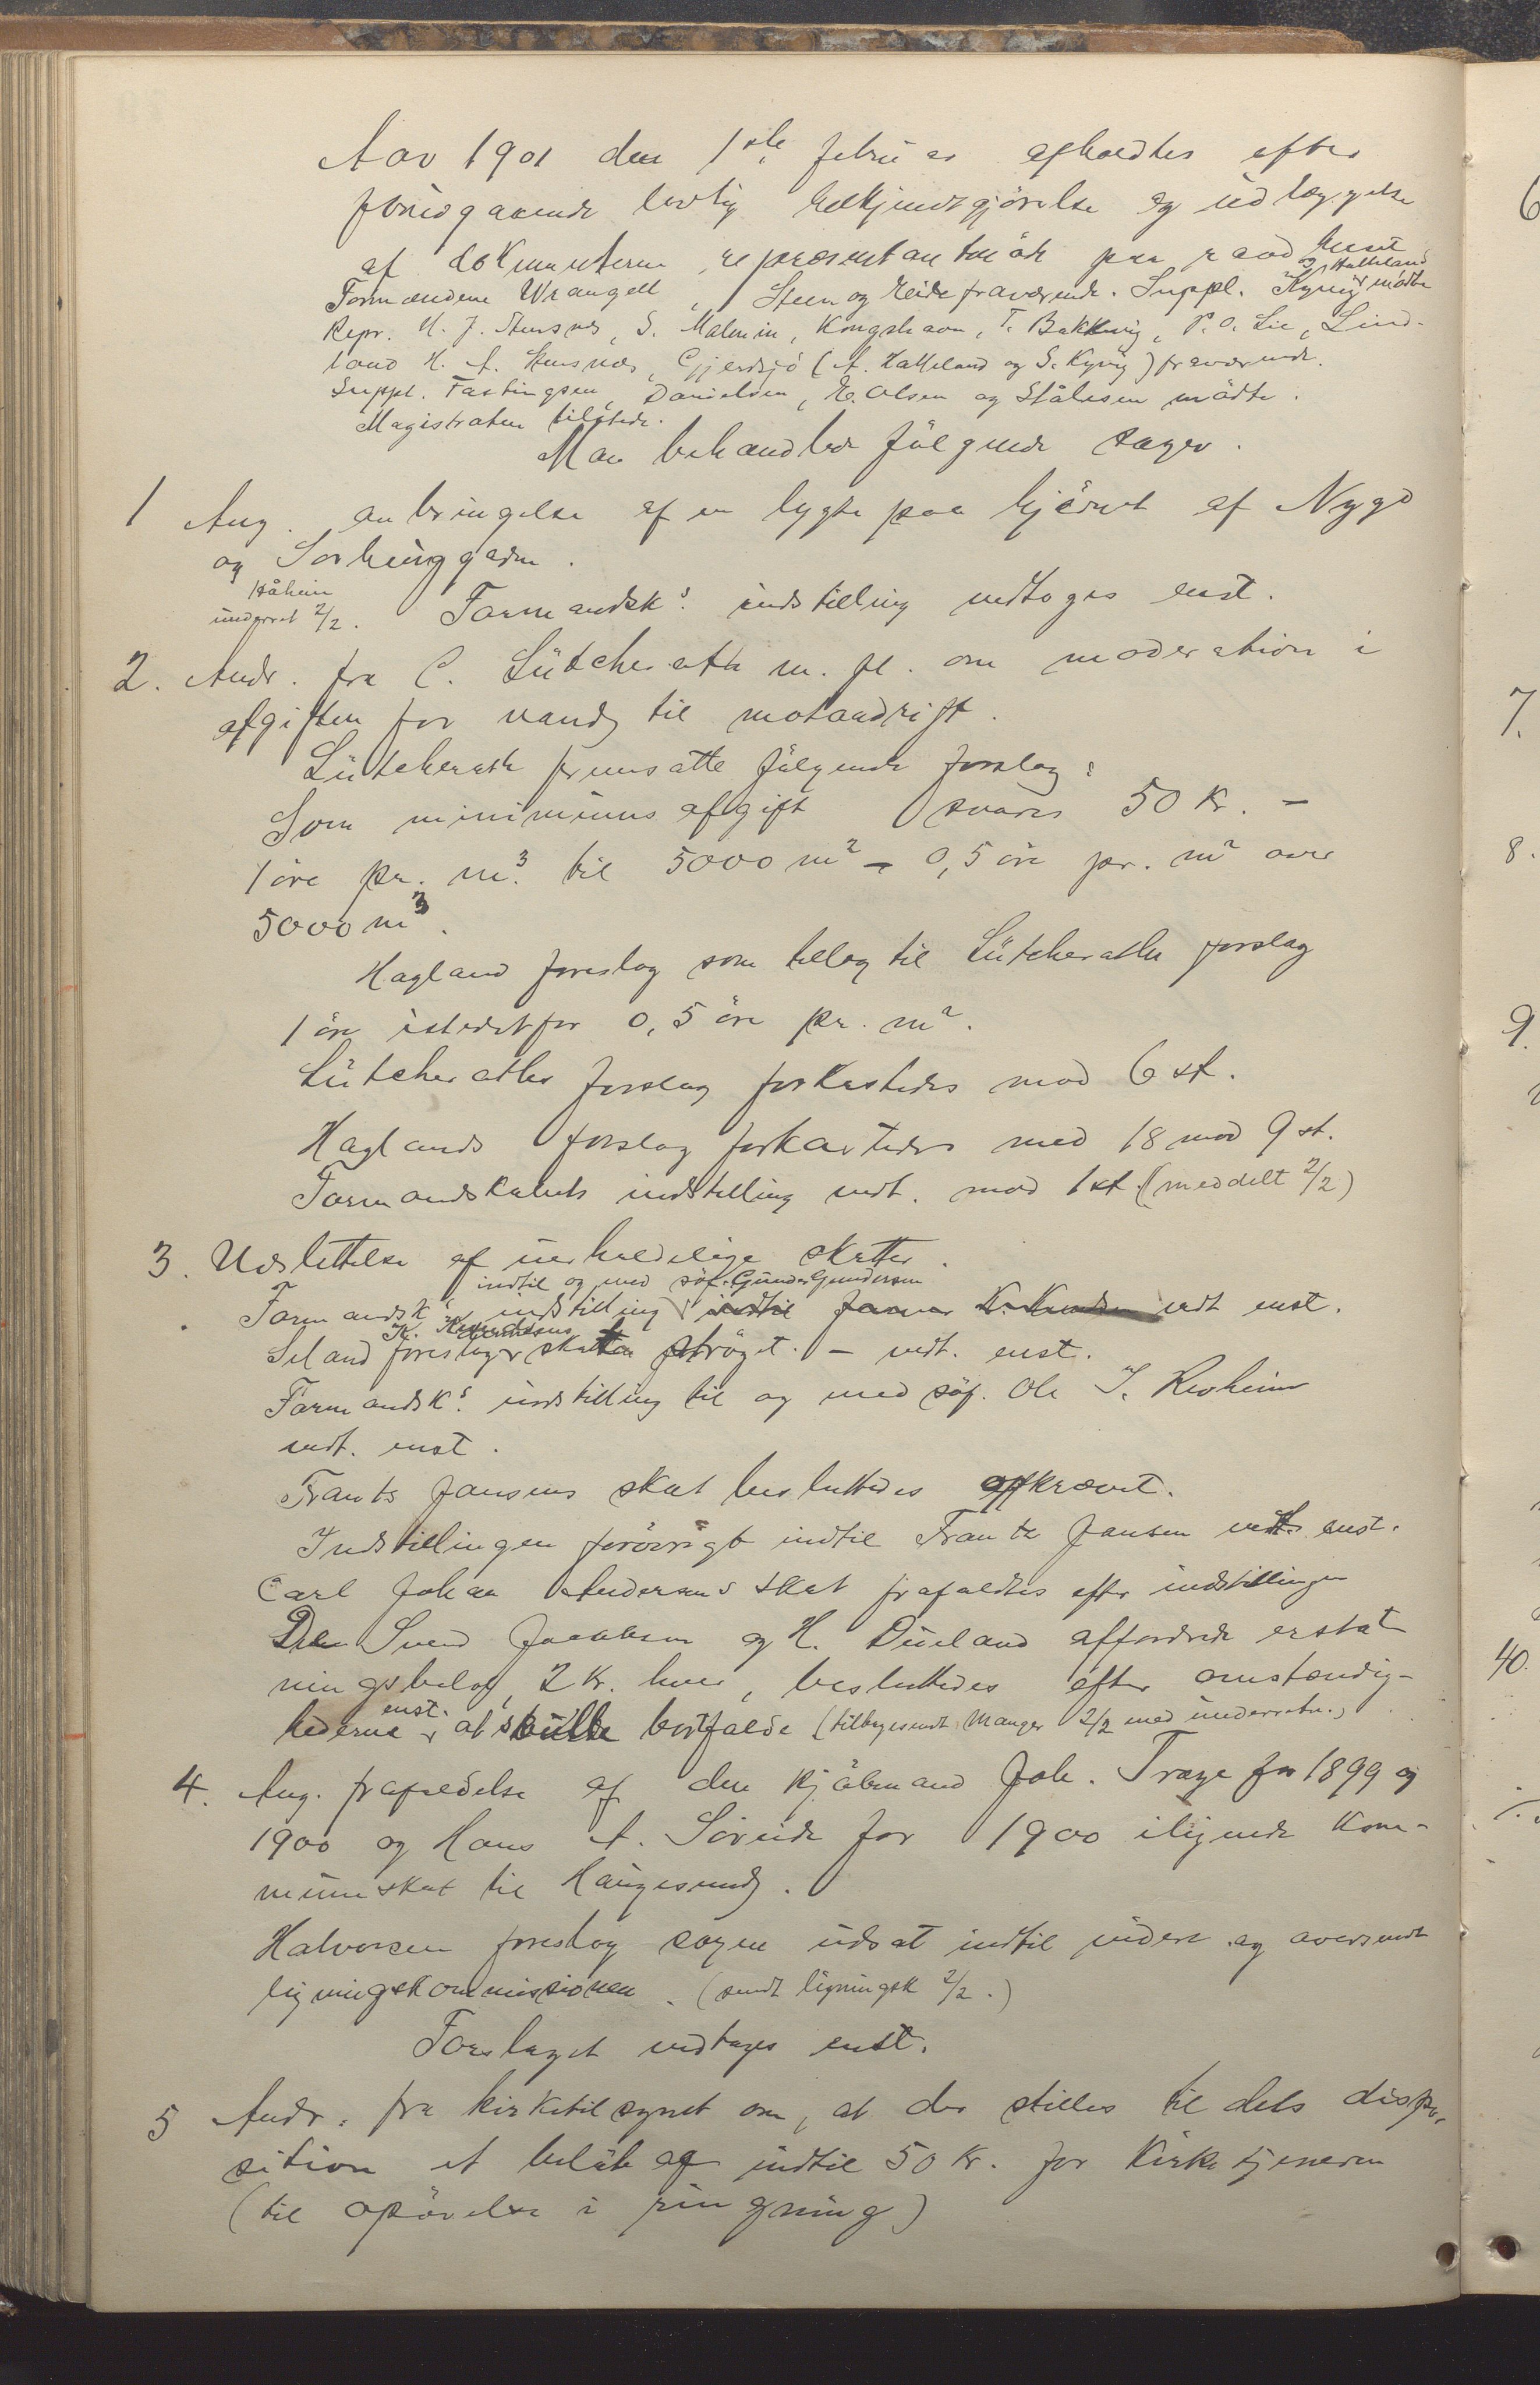 Aar 1901 den 1ste februar afholdtes efter
forudgaaende lovlig bekjendtgjörelse og udlæggelse
af dokumenterne, repræsentantmöde paa raadhuset
Formændene Wrangell, Steen og Eide fraværende. Suppl. Kyvig og Hatteland mödte
Repr. U. J. Stensnes, S. Malmin, Kongshavn, T. Bakkevig, P. O. Lie, Lind-
land H. A. Stensnæs, Gjerdsjö (A. Hatteland og S. Kyvig) fraværende.
Suppl. Fastingsen, Danielsen, E. Olsen og Stålesen mödte.
Magistraten tilstede.
Man behandlede fölgende sager.
1 Ang. anbringelse af en lygte paa hjörnet af Nygd
og Sörhauggaden.
underret 2/2. Formandsk's indstilling vedtoges enst.
2. Andr. fra C. Lütcherath m. fl. om moderation i
afgiften for vand til motordrift.
Lütcherath fremsatte fölgende forslag:
Som minimumsafgift svares 50 Kr. -
1 öre pr. m3. til 5000 m2 - 0,5 öre pr. m2 over
5000 m3.
Hagland foreslog som tillæg til Lütcheraths forslag
1 öre istedetfor 0,5 öre pr. m2.
Lütcheraths forslag forkastedes mod 6 st.
Haglands forslag forkastedes med 18 mod 9 st.
Formandskabets indstilling vedt. mod 1 st. (meddelt 2/2)
3. Udslettelse af uerholdelige skatter.
indtil og med söf. Gunder Gundersen
Formandsk's indstilling indtil K. Knudsen vedt enst.
K. Knudsens
Seland foreslog skatten ströget. - vedt. enst.
Formandsk's indstilling til og med söf. Ole J. Roheim
vedt. enst.
Frants Jansens skat besluttedes afkrævet.
Indstillingen forövrigt indtil Frantz Jansen vedt. enst.
Carl Johan Andersens skat frafaldtes efter indstillingen
De Svend Jacobsen og H. Dueland affordrede erstat-
ningsbelöb, 2 Kr. hver, besluttedes efter omstændig-
hederne enst. at skulle bortfalde (tilbagesendt Manger 2/2 med underretn.)
4. Ang. frafaldelse af den kjöbmand Joh. Trage for 1899 og
1900 og Hans A. Söreide for 1900 ilignede kom-
muneskat til Haugesund.
Halvorsen foreslog sagen udsat indtil videre og oversendt
ligningskommissionen. (sendt ligningsk 2/2.)
Forslaget vedtages enst.
5 Andr. fra kirketilsynet om, at der stilles til dets dispo-
sition et belöb af indtil 50 Kr. for kirketjeneren
(til opövelse i ringning)
6
7.
8.
9.
40.